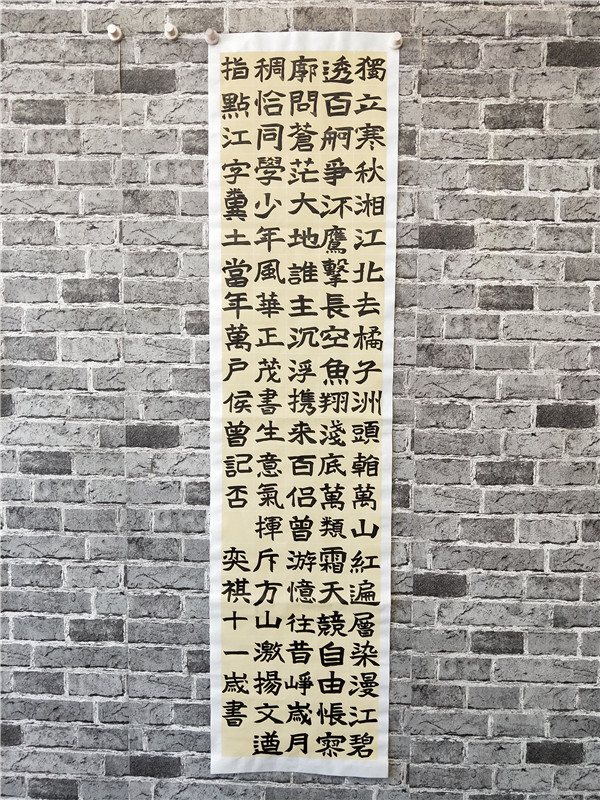 獨立寒秋湘江北去橘子洲頭看萬山紅遍層染漫江碧
透百舸爭流鷹擊長空魚翔淺底萬類霜天競自由悵寥
廓問蒼茫大地誰主沉浮携来百侶曾游憶往昔崢歲月
稠恰同學少年風華正茂書生意氣揮斥方山激揚文遒
指點江字糞土當年萬戶侯曾記否 奕祺十一歲書